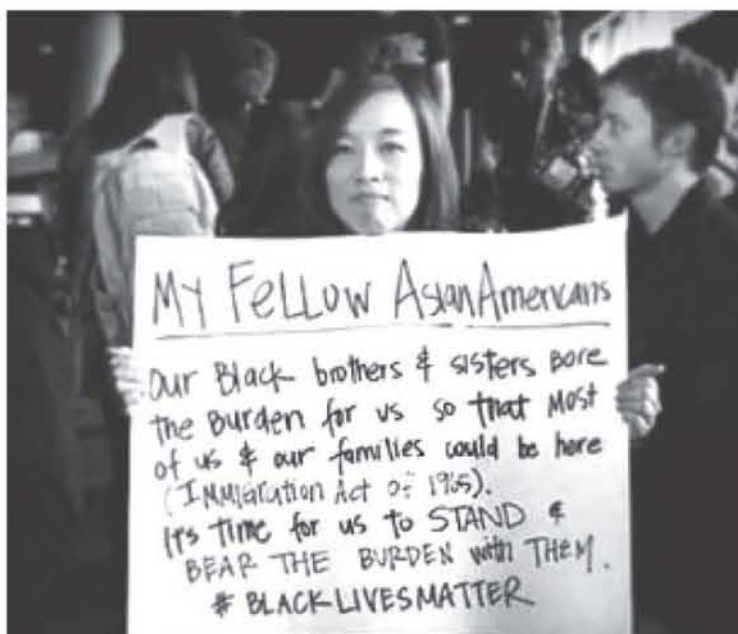 MY FELLOW AsianAmericans
Our Black brothers & sisters Bore
the Burden for us so that Most
of us & our families could be here
(IMMIGration Act of 1965).
It's time for us to STAND &
BEAR THE BURDEN with THEM.
# BLACKLIVESMATTER